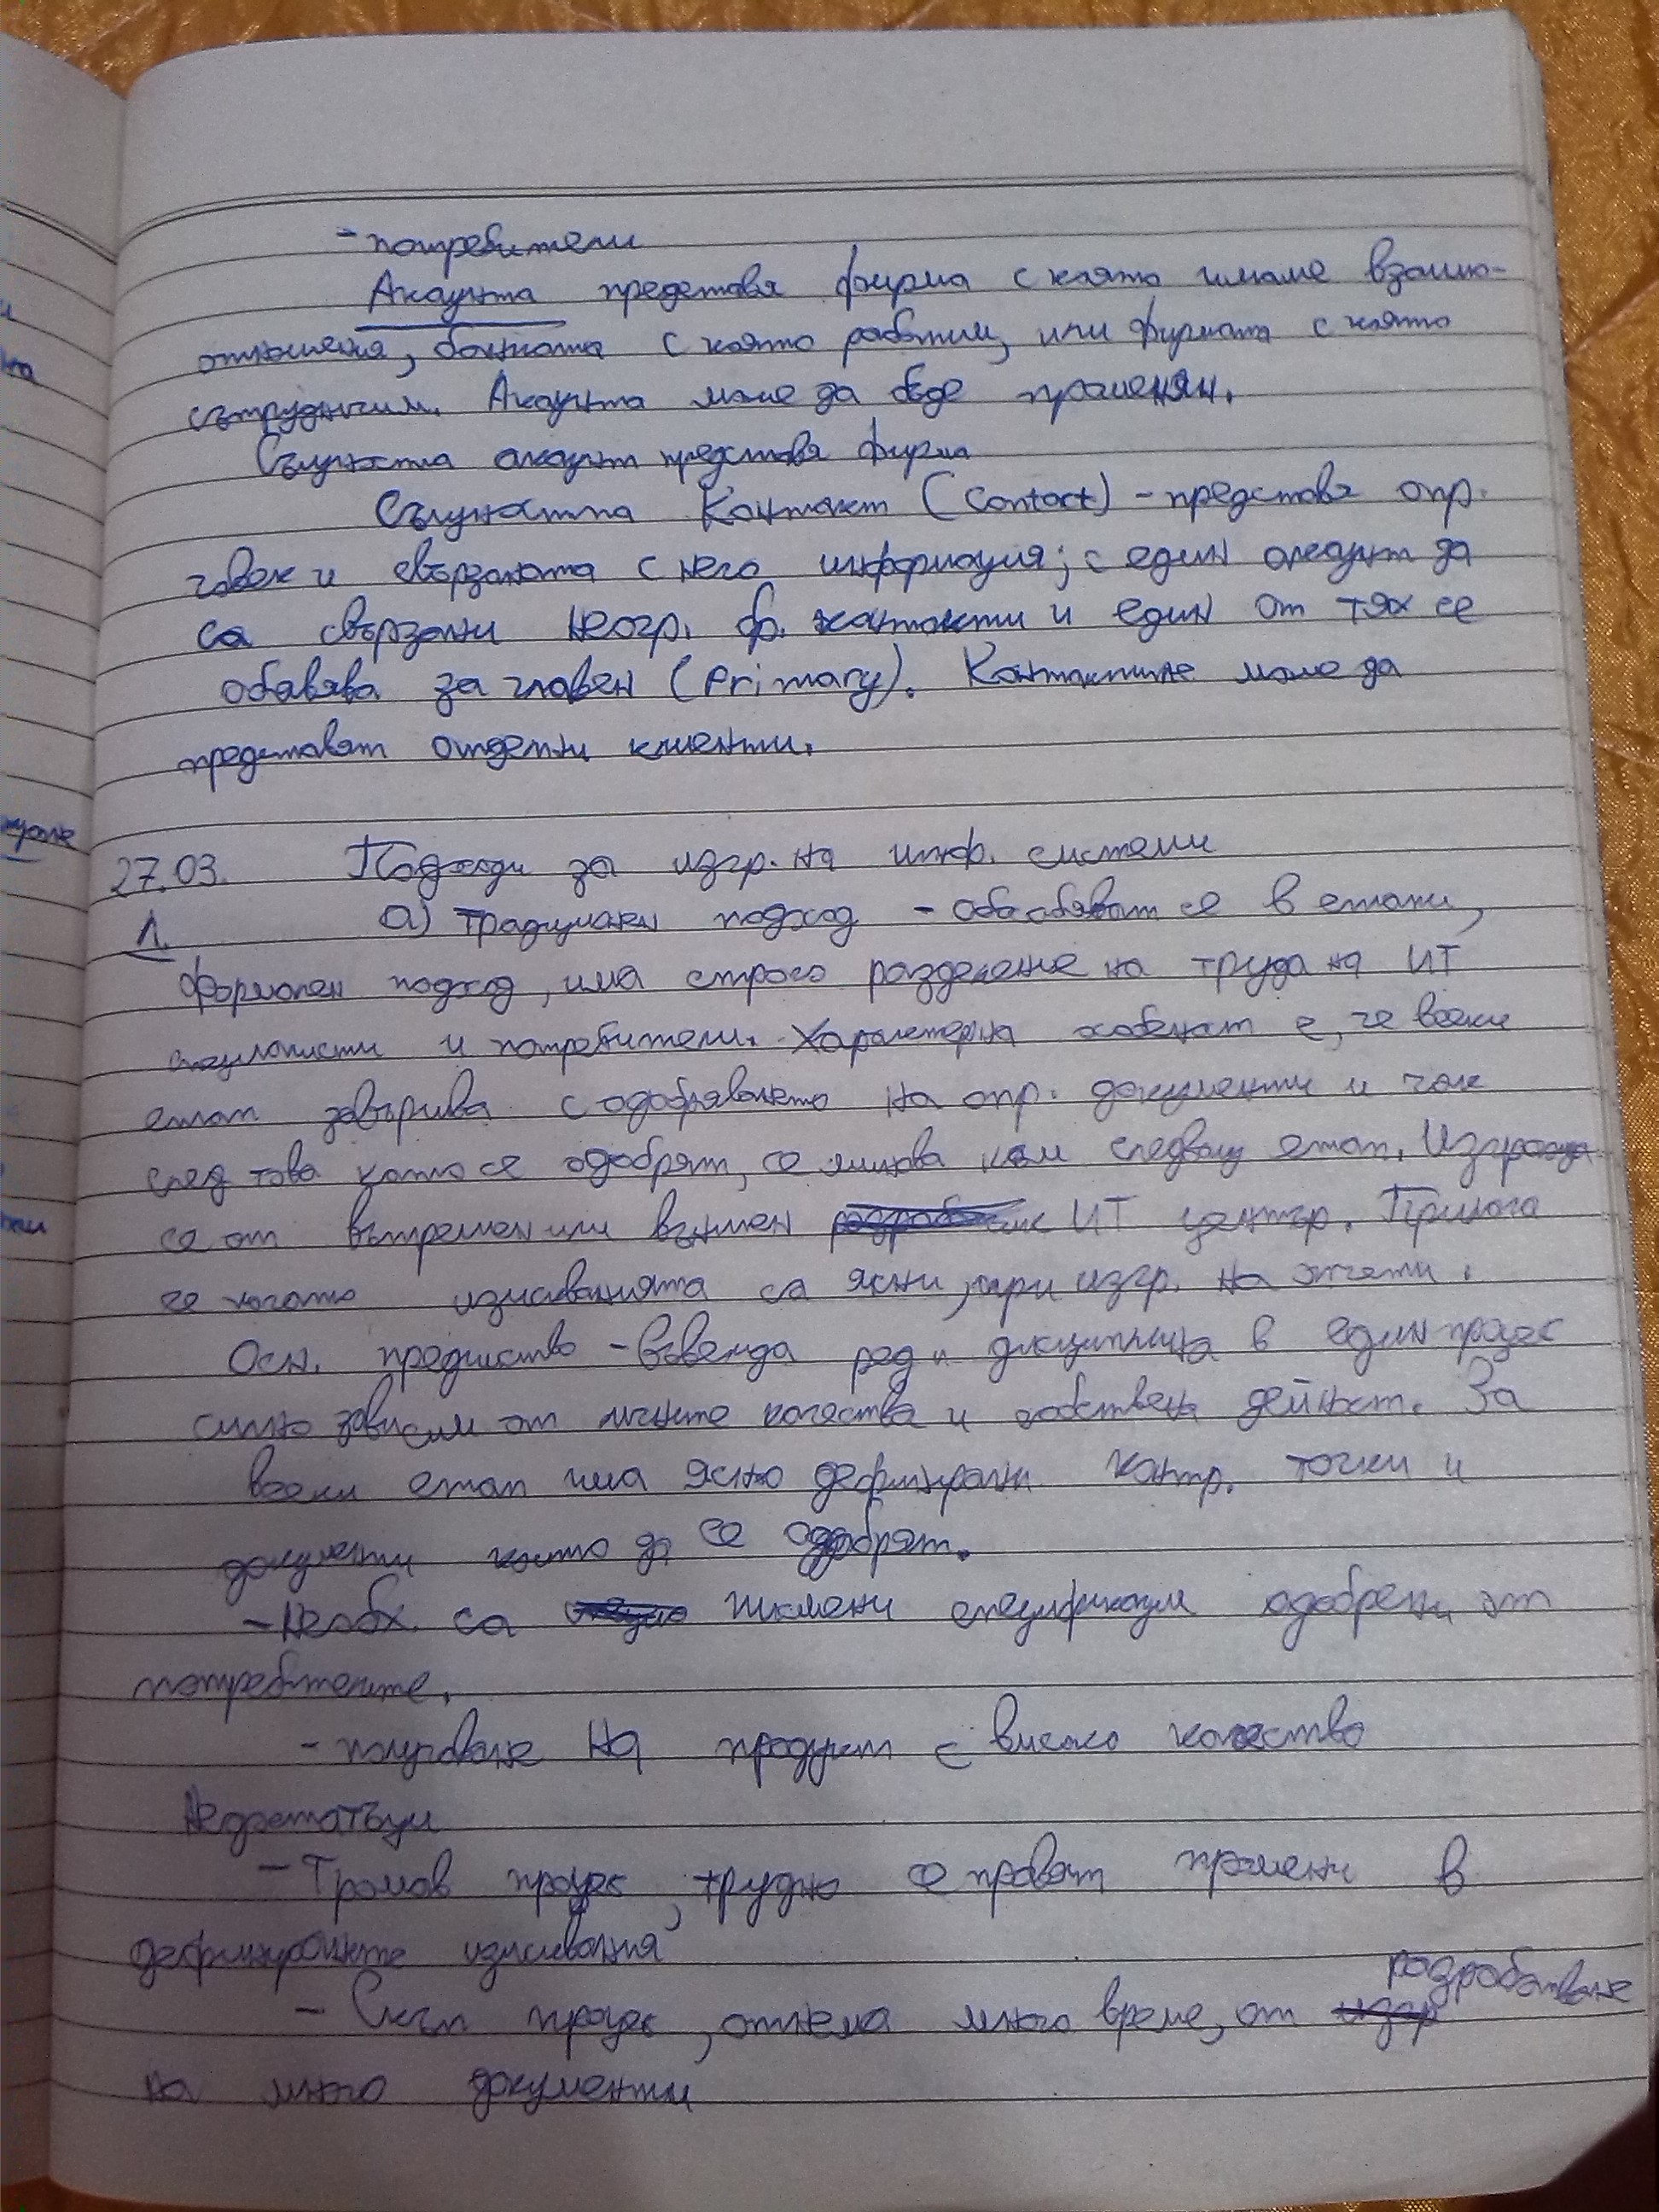 - потребители
Акаунта представя фирма с която имаме взаимо-
отношения, банката с която работим, или фирмата с която
сътрудничим. Акаунта може да бъде променян.
Същността акаунт представя фирма
Същността Контакт (Contact) - представя опр.
човек и свързаната с него информация; с един акаунт да
са свързани неогр. бр. контакти и един от тях се
обявява за главен (Primary). Контактите може да
представят отделни клиенти.
27.03. Подходи за изгр. на инф. системи
Л. а) Традиционен подход - обособяват се в етапи,
формален подход, има строго разделение на труда на ИТ
специалисти и потребители. Характерна особеност е, че всеки
етап завършва с одобряването на опр. документи и чак
след това като се одобрят, се минава към следващ етап. Изгражда
се от вътрешен или външен ИТ център. Прилага
се когато изискванията са ясни, при изгр. на отчети.
Осн. предимство - Въвежда ред и дисциплина в един процес
силно зависим от личните качества и собствена дейност. За
всеки етап има ясно дефинирани контр. точки и
документи които да се одобрят.
- Необх. са писмени спецификации одобрени от
потребителите.
- получаване на продукт с високо качество
Недостатъци
- Тромав процес, трудно се правят промени в
дефинираните изисквания
- Скъп процес, отнема много време, от разработване
на много документи